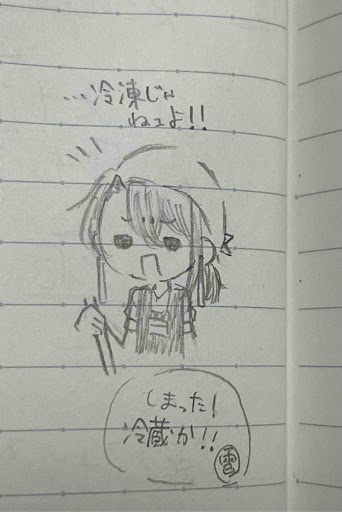 …冷凍じゃ
ねェよ!!
しまった!
冷蔵か!!
雪